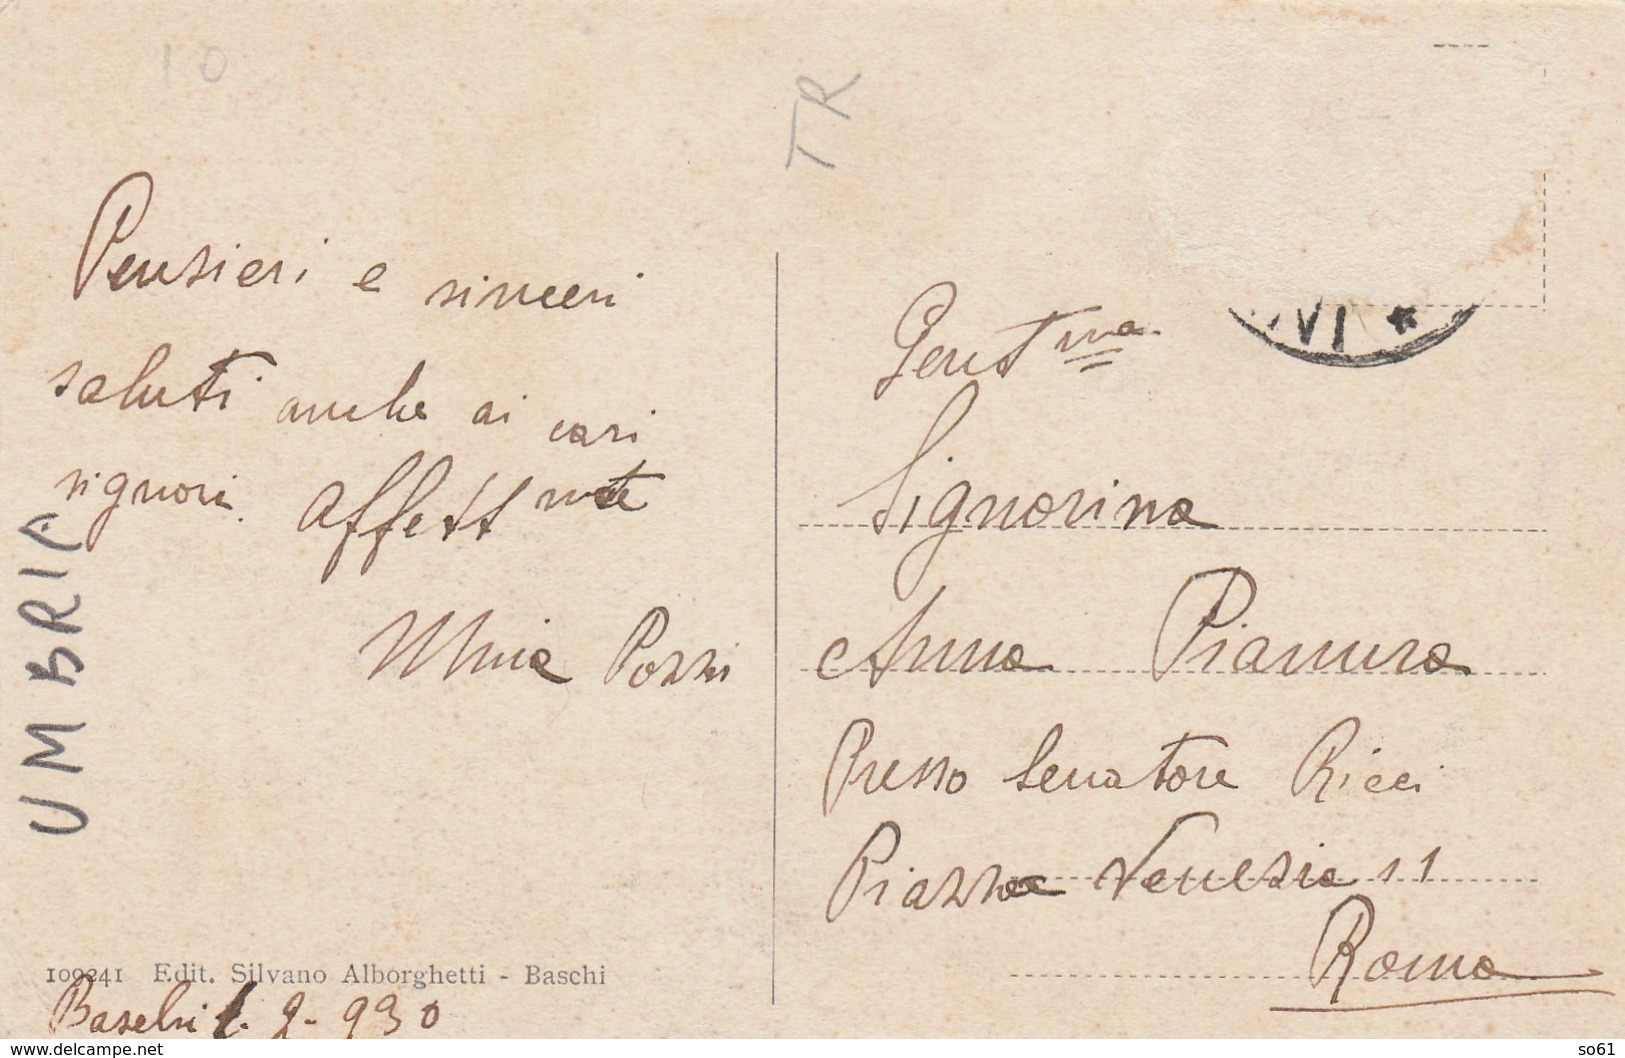 10
TR
Pensieri e sinceri
saluti anche ai cari
signori. Affett mte
Pozzi
UMBRIA
109241 Edit. Silvano Alborghetti - Baschi
Baschi 2- 930
VI *
Gent ma
Signorina
Anna Pianura
Presso Senatore Ricci
Piazza Venezia 11
Roma
www.delcampe.net
so61